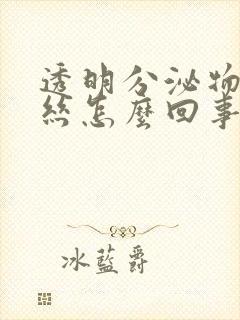 透明分泌物
丝怎麼回事
冰蓝爵